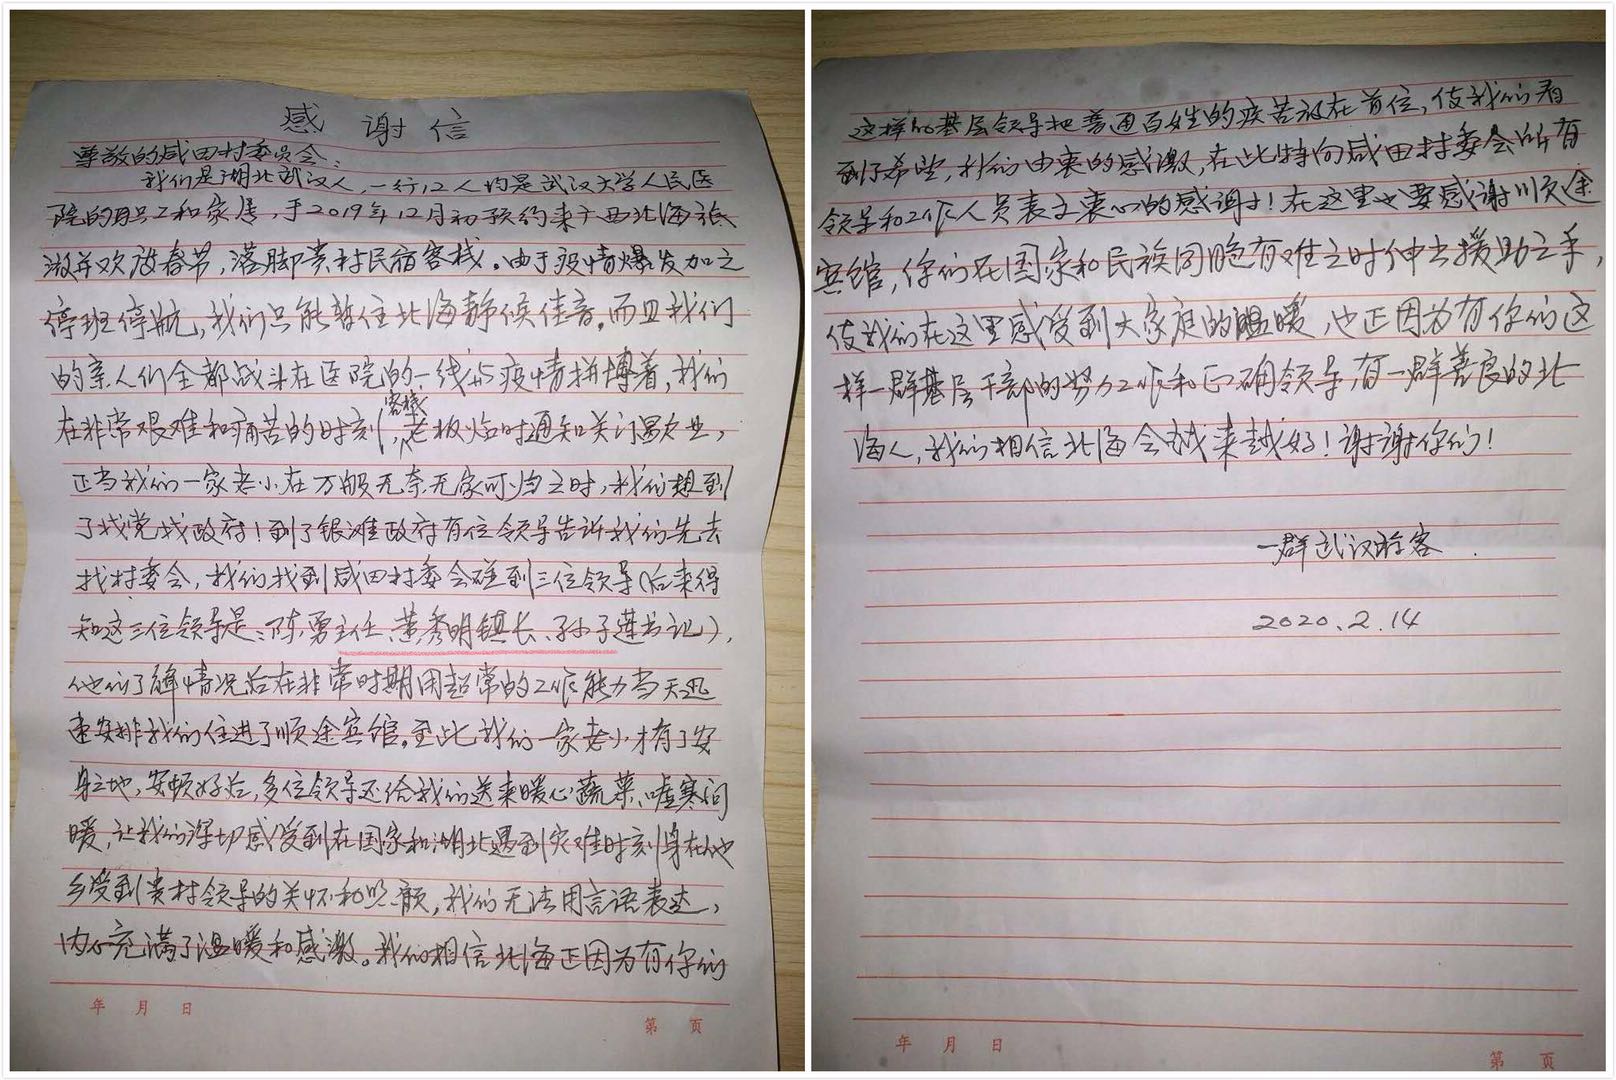 感谢信
尊敬的咸田村委员会：
我们是湖北武汉人，一行12人均是武汉大学人民医
院的职工和家属，于2019年12月初预约来广西北海旅
游并欢度春节，落脚贵村民宿客栈。由于疫情爆发加之
停班停航，我们只能暂住北海静候佳音。而且我们
的亲人们全都战斗在医院的一线与疫情拼搏着，我们
在非常艰难和痛苦的时刻，客栈老板临时通知关门歇业，
正当我们一家老小在万般无奈无家可归之时，我们想到
了找党找政府！到了银滩政府有位领导告诉我们先去
找村委会，我们找到咸田村委会碰到三位领导（后来得
知这三位领导是：陈勇主任、黄秀明镇长、孙子莲书记），
他们了解情况后在非常时期用超常的工作能力当天迅
速安排我们住进了顺途宾馆。至此我们一家老小才有了安
身之地，安顿好后，多位领导还给我们送来暖心蔬菜、嘘寒问
暖，让我们深切感受到在国家和湖北遇到灾难时刻身在他
乡受到贵村领导的关怀和照顾，我们无法用言语表达，
内心充满了温暖和感激。我们相信北海正因为有你们
这样的基层领导把普通百姓的疾苦放在首位，使我们看
到了希望，我们由衷的感激，在此特向咸田村委会所有
领导和工作人员表示衷心的感谢！在这里也要感谢顺途
宾馆，你们在国家和民族同胞有难之时伸出援助之手，
使我们在这里感受到大家庭的温暖，也正因为有你们这
样一群基层干部的努力工作和正确领导，有一群善良的北
海人，我们相信北海会越来越好！谢谢你们！
一群武汉游客
2020.2.14
年 月 日
第 页
年 月 日
第 页